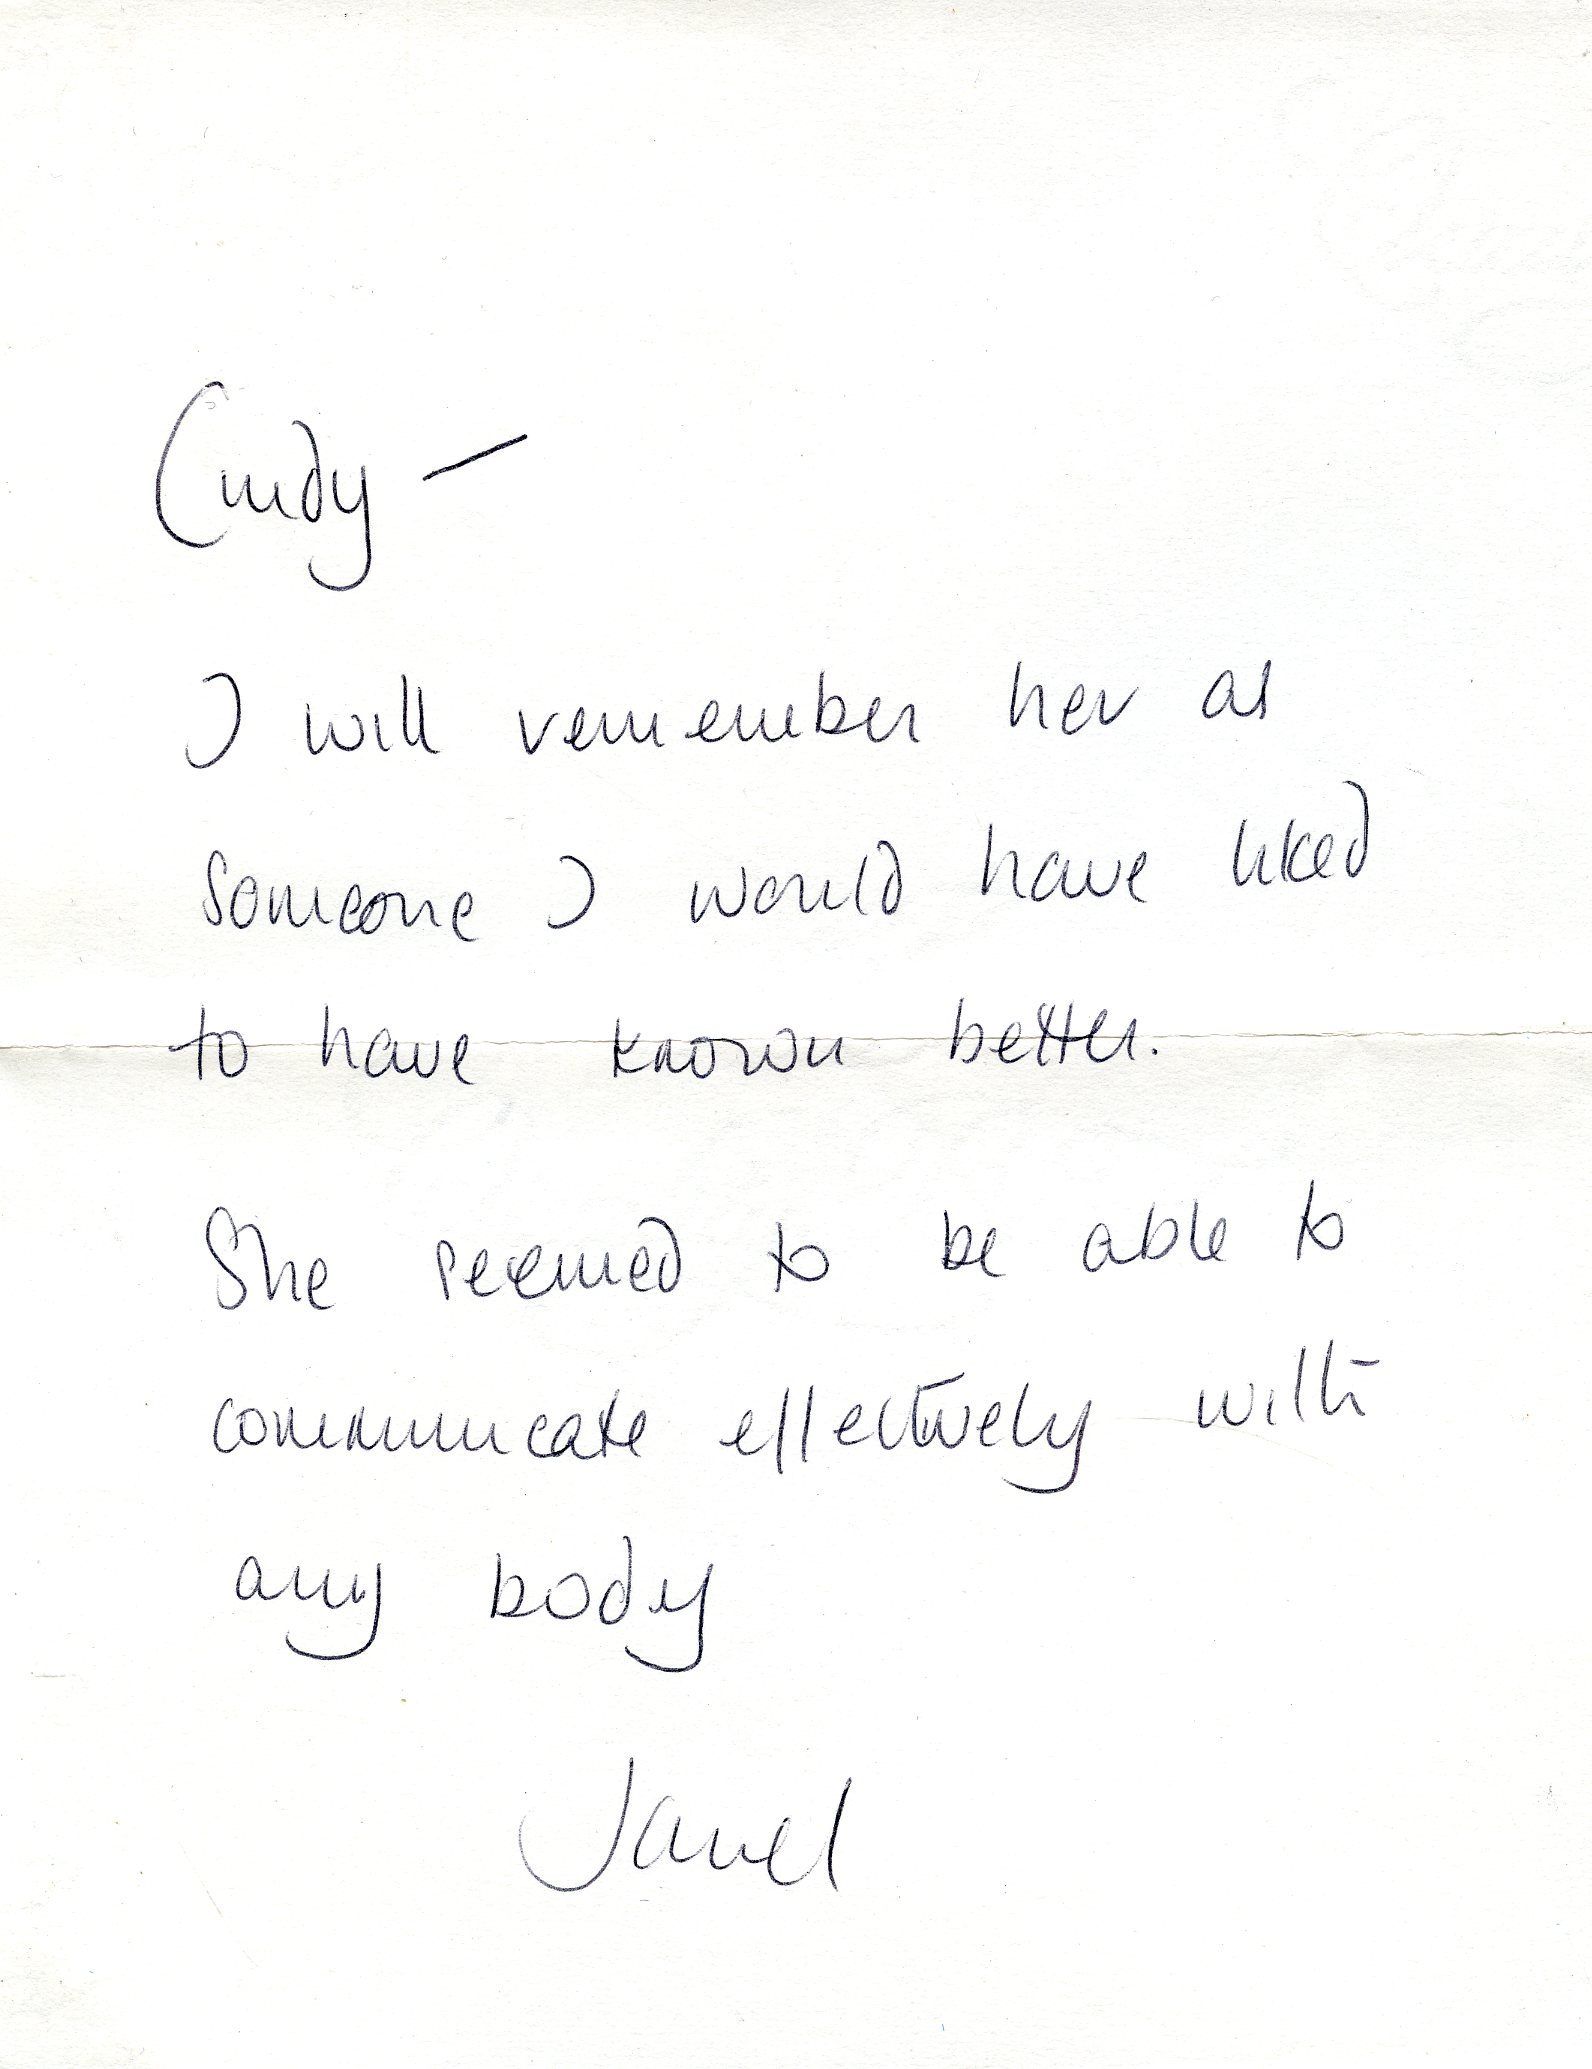 Cindy —
I will remember her as
someone I would have liked
to have known better.
She seemed to be able to
communicate effectively with
any body
Janel